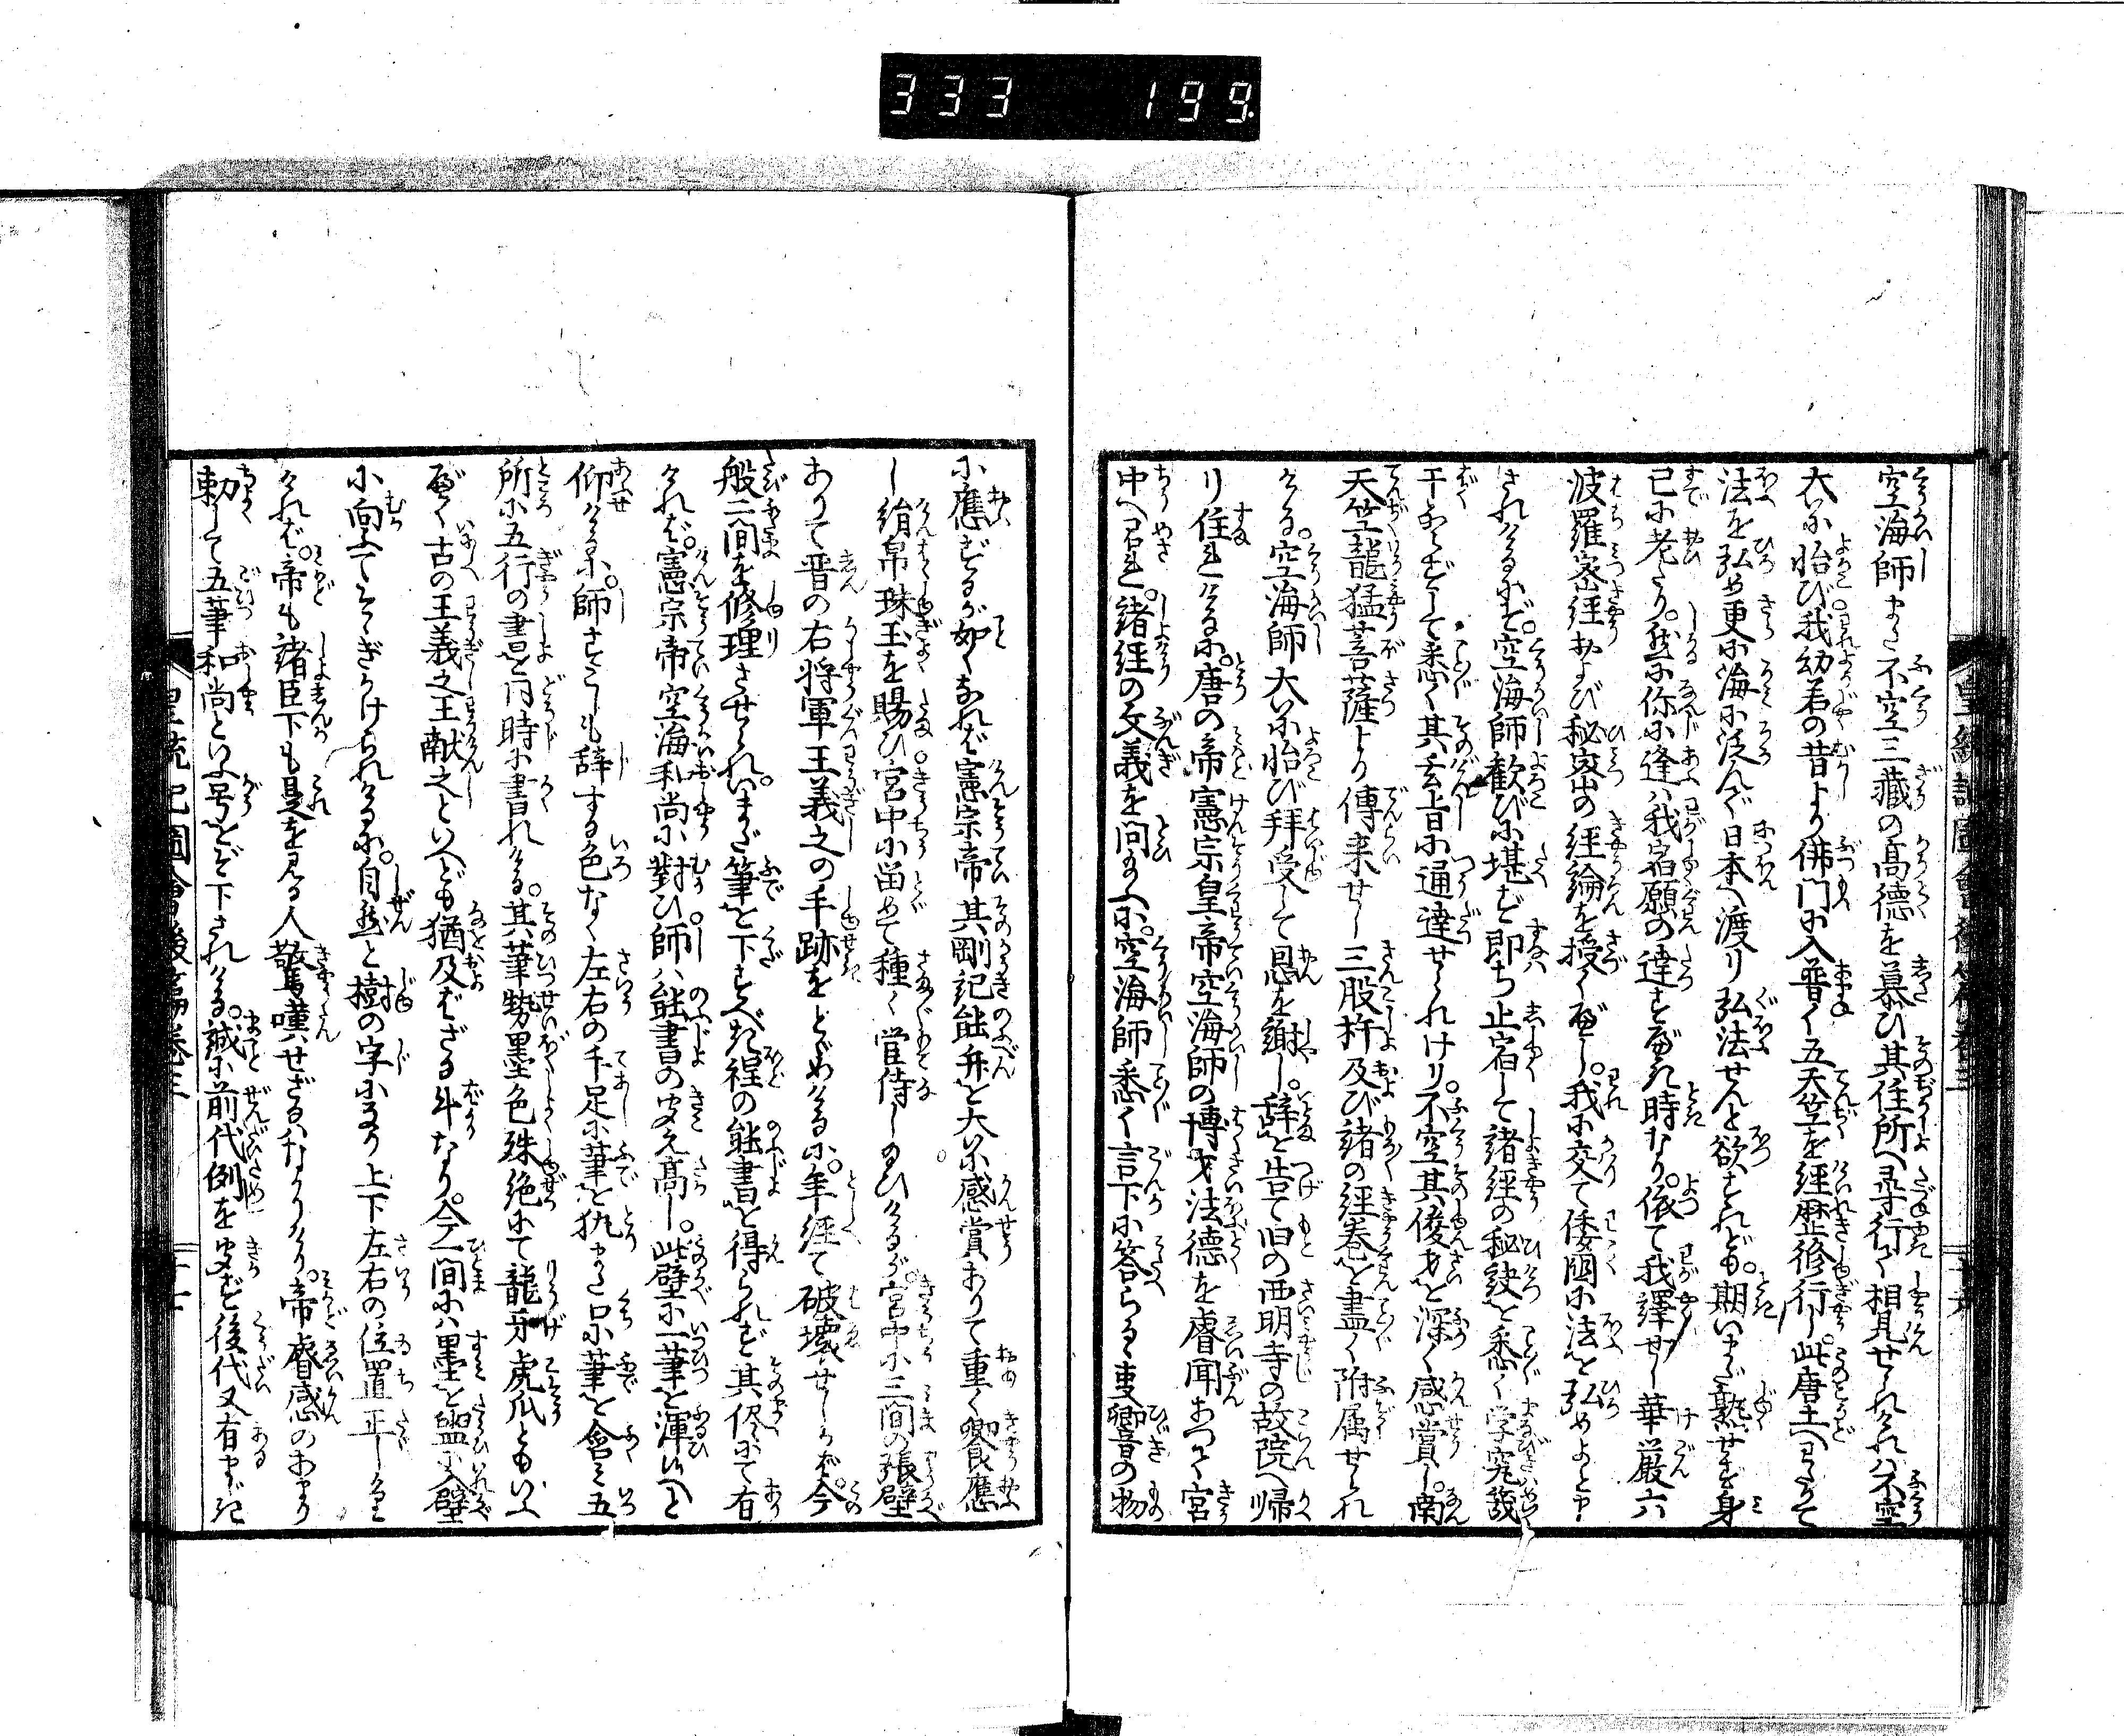 333 199
空海師また不空三藏の高徳を慕ひ其住所へ尋行て相見せられければ不空
大に怡び我幼若の昔より佛門に入普く五天竺を経歴修行し此唐土へわたりて
法を弘め更に海に泛んで日本へ渡り弘法せんと欲すれども。期いまだ熟せず身
已に老たり。然に你に逢ハ我宿願の達すべき時なり。依て我繹せし華厳六
波羅密経および秘密の経論を授くべし。我に交て倭國に法を弘めよと申
されけるにぞ。空海師歓びに堪ず即ち止宿して諸経の秘訣を悉く学究裁
干ならずして悉く其玄旨に通達せられけり。不空其俊才を深く感賞し。南
天竺龍猛菩薩より傳来せし三股杵及び諸の経巻を盡く附属せられ
ける。空海師大に怡び拜受して恩を謝し。辞を告て旧の西明寺の故院へ帰
り住れけるに。唐の帝憲宗皇帝空海師の博才法徳を睿聞あつて宮
中へ召れ。諸経の文義を問給ふに。空海師悉く言下に答らるゝ事響の物
に應ずるが如くなれば憲宗帝其剛記能弁を大に感賞ありて重く饗應
し絹帛珠玉を賜ひ宮中に留めて種々官侍し給ひけるが。宮中に三間の張壁
ありて晋の右将軍王義之の手跡をとゞめけるに。年経て破壊せしかば。今
般二間を修理させられ。いまだ筆を下すべき程の能書を得られず其侭にて有
ければ。憲宗帝空海和尚に對ひ師ハ能書の聞え高し。此壁に一筆を渾ひ給へと
仰けるに。師すこしも辞する色なく左右の手足に筆を執また口に筆を含ミ五
所に五行の書を同時に書れける。其筆勢墨色殊絶にて龍牙虎爪ともいふ
べく古の王義之王献之といへども猶及ばざる斗なり。今一間にハ墨を盥に入壁
に向ふてそゝぎかけられけるに。自然と樹の字になり上下左右の位置正しけ
れば。帝も諸臣下も是を見る人驚嘆せざるハなかりけり。帝睿感のあまり
勅して五筆和尚といふ号をぞ下されける。誠に前代例を聞ず後代又有まじき
皇統記圖會後篇巻三